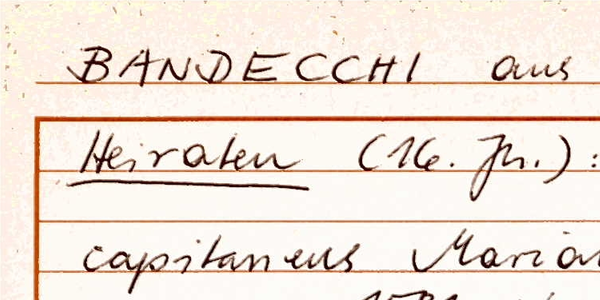 BANDECCHI aus
Heiraten (16. Jh.):
capitaneus